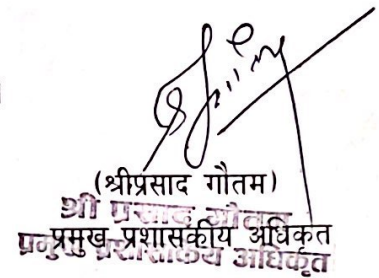 (श्रीप्रसाद गौतम)
श्री प्रसाद गौतम
प्रमुख प्रशासकीय अधिकृत
प्रमुख प्रशासकीय अधिकृत